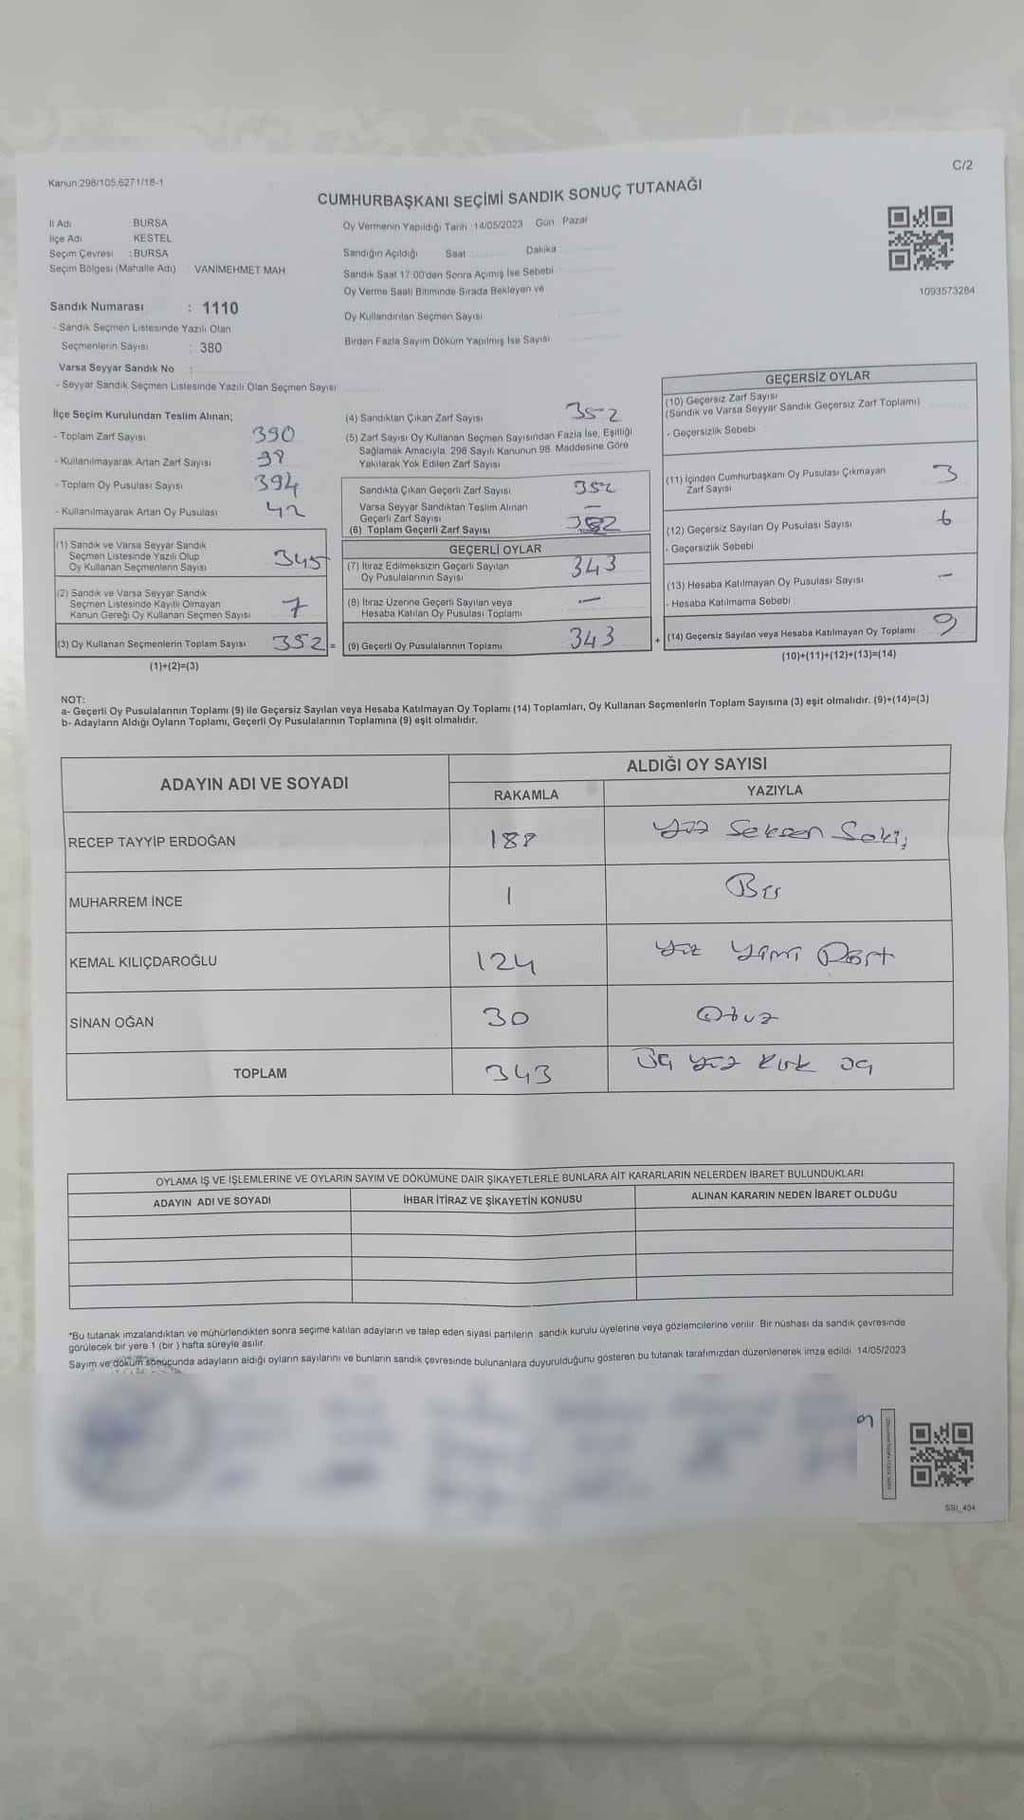 Kanun:298/105,6271/18-1
C/2
CUMHURBAŞKANI SEÇİMİ SANDIK SONUÇ TUTANAĞI
İl Adı BURSA
İlçe Adı KESTEL
Seçim Çevresi :BURSA
Seçim Bölgesi (Mahalle Adı) VANİMEHMET MAH
Oy Vermenin Yapıldığı Tarih :14/05/2023 Gün Pazar
Sandığın Açıldığı Saat Dakika
Sandık Saat 17:00'den Sonra Açılmış İse Sebebi
Oy Verme Saati Bitiminde Sırada Bekleyen ve
Oy Kullandırılan Seçmen Sayısı
Birden Fazla Sayım Döküm Yapılmış İse Sayısı
1093573284
Sandık Numarası : 1110
- Sandık Seçmen Listesinde Yazılı Olan
Seçmenlerin Sayısı : 380
Varsa Seyyar Sandık No :
- Seyyar Sandık Seçmen Listesinde Yazılı Olan Seçmen Sayısı
İlçe Seçim Kurulundan Teslim Alınan;
- Toplam Zarf Sayısı 390
- Kullanılmayarak Artan Zarf Sayısı
- Toplam Oy Pusulası Sayısı 394
- Kullanılmayarak Artan Oy Pusulası 42
(1) Sandık ve Varsa Seyyar Sandık
Seçmen Listesinde Yazılı Olup
Oy Kullanan Seçmenlerin Sayısı 345
(2) Sandık ve Varsa Seyyar Sandık
Seçmen Listesinde Kayıtlı Olmayan
Kanun Gereği Oy Kullanan Seçmen Sayısı 7
(3) Oy Kullanan Seçmenlerin Toplam Sayısı 352 =
(1)+(2)=(3)
(4) Sandıktan Çıkan Zarf Sayısı 352
(5) Zarf Sayısı Oy Kullanan Seçmen Sayısından Fazla İse, Eşitliği
Sağlamak Amacıyla, 298 Sayılı Kanunun 98. Maddesine Göre
Yakılarak Yok Edilen Zarf Sayısı
Sandıkta Çıkan Geçerli Zarf Sayısı 352
Varsa Seyyar Sandıktan Teslim Alınan
Geçerli Zarf Sayısı —
(6) Toplam Geçerli Zarf Sayısı 352
GEÇERLİ OYLAR
(7) İtiraz Edilmeksizin Geçerli Sayılan
Oy Pusulalarının Sayısı 343
(8) İtiraz Üzerine Geçerli Sayılan veya
Hesaba Katılan Oy Pusulası Toplamı —
(9) Geçerli Oy Pusulalarının Toplamı 343 +
GEÇERSİZ OYLAR
(10) Geçersiz Zarf Sayısı
(Sandık ve Varsa Seyyar Sandık Geçersiz Zarf Toplamı)
- Geçersizlik Sebebi
(11) İçinden Cumhurbaşkanı Oy Pusulası Çıkmayan
Zarf Sayısı 3
(12) Geçersiz Sayılan Oy Pusulası Sayısı 6
- Geçersizlik Sebebi
(13) Hesaba Katılmayan Oy Pusulası Sayısı —
- Hesaba Katılmama Sebebi
(14) Geçersiz Sayılan veya Hesaba Katılmayan Oy Toplamı 9
(10)+(11)+(12)+(13)=(14)
NOT:
a- Geçerli Oy Pusulalarının Toplamı (9) ile Geçersiz Sayılan veya Hesaba Katılmayan Oy Toplamı (14) Toplamları, Oy Kullanan Seçmenlerin Toplam Sayısına (3) eşit olmalıdır. (9)+(14)=(3)
b- Adayların Aldığı Oyların Toplamı, Geçerli Oy Pusulalarının Toplamına (9) eşit olmalıdır.
ADAYIN ADI VE SOYADI
ALDIĞI OY SAYISI
RAKAMLA YAZIYLA
RECEP TAYYİP ERDOĞAN 188 Yüz Seksen Sekiz
MUHARREM İNCE 1 Bir
KEMAL KILIÇDAROĞLU 124 Yüz Yirmi Dört
SİNAN OĞAN 30 Otuz
TOPLAM 343 Üç Yüz Kırk Üç
OYLAMA İŞ VE İŞLEMLERİNE VE OYLARIN SAYIM VE DÖKÜMÜNE DAİR ŞİKAYETLERLE BUNLARA AİT KARARLARIN NELERDEN İBARET BULUNDUKLARI
ADAYIN ADI VE SOYADI İHBAR İTİRAZ VE ŞİKAYETİN KONUSU ALINAN KARARIN NEDEN İBARET OLDUĞU
*Bu tutanak imzalandıktan ve mühürlendikten sonra seçime katılan adayların ve talep eden siyasi partilerin sandık kurulu üyelerine veya gözlemcilerine verilir. Bir nüshası da sandık çevresinde
görülecek bir yere 1 (bir ) hafta süreyle asılır.
Sayım ve döküm sonucunda adayların aldığı oyların sayılarını ve bunların sandık çevresinde bulunanlara duyurulduğunu gösteren bu tutanak tarafımızdan düzenlenerek imza edildi. 14/05/2023
SSI_404